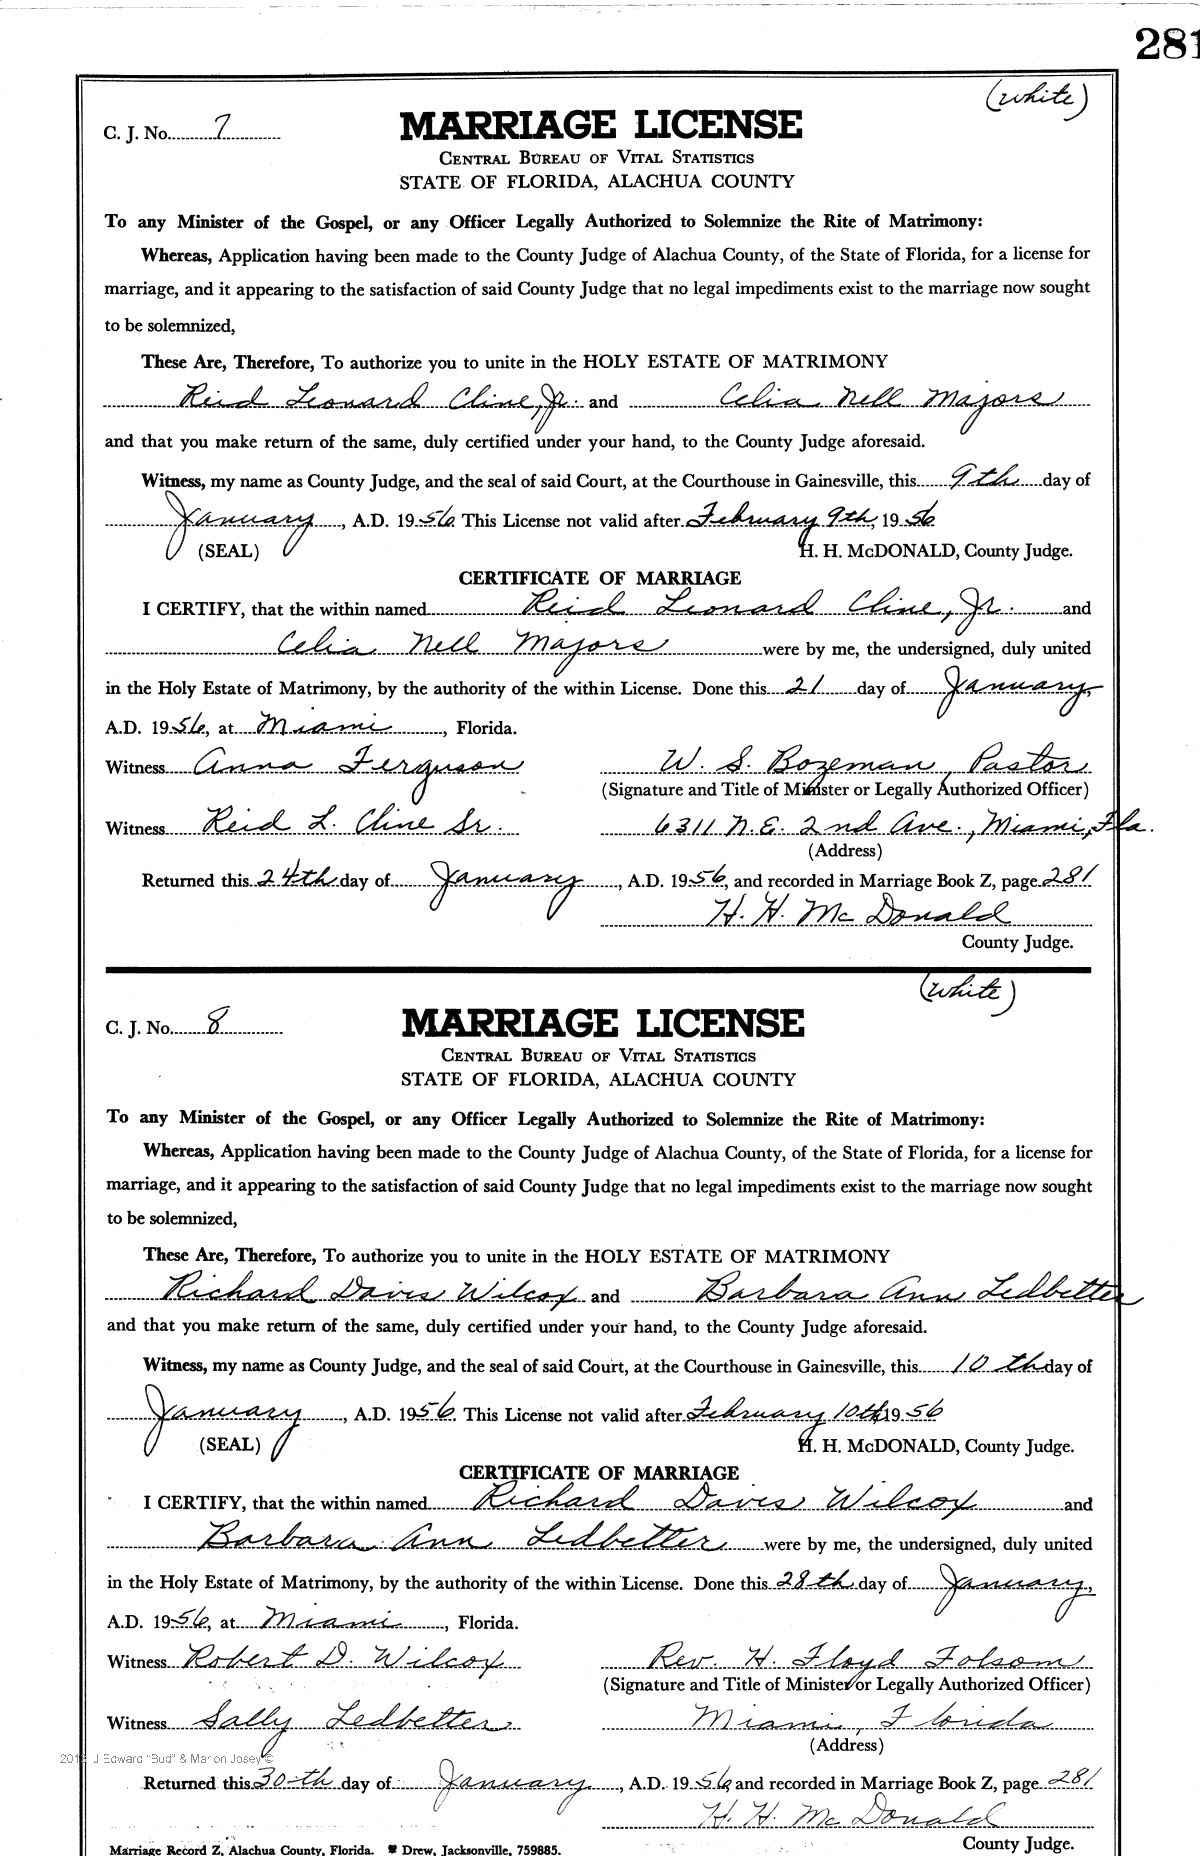 281
(white)
C. J. No. 7
MARRIAGE LICENSE
CENTRAL BUREAU OF VITAL STATISTICS
STATE OF FLORIDA, ALACHUA COUNTY
To any Minister of the Gospel, or any Officer Legally Authorized to Solemnize the Rite of Matrimony:
Whereas, Application having been made to the County Judge of Alachua County, of the State of Florida, for a license for
marriage, and it appearing to the satisfaction of said County Judge that no legal impediments exist to the marriage now sought
to be solemnized,
These Are, Therefore, To authorize you to unite in the HOLY ESTATE OF MATRIMONY
Reid Leonard Cline, Jr. and Celia Nell Majors
and that you make return of the same, duly certified under your hand, to the County Judge aforesaid.
Witness, my name as County Judge, and the seal of said Court, at the Courthouse in Gainesville, this 9th day of
January, A.D. 1956. This License not valid after February 9th, 1956
(SEAL) H. H. McDONALD, County Judge.
CERTIFICATE OF MARRIAGE
I CERTIFY, that the within named Reid Leonard Cline, Jr. and
Celia Nell Majors were by me, the undersigned, duly united
in the Holy Estate of Matrimony, by the authority of the within License. Done this 21 day of January,
A.D. 1956, at Miami, Florida.
Witness Anna Ferguson W. S. Bozeman, Pastor
(Signature and Title of Minister or Legally Authorized Officer)
Witness Reid L. Cline Sr. 6311 N.E. 2nd Ave., Miami, Fla.
(Address)
Returned this 24th day of January, A.D. 1956, and recorded in Marriage Book Z, page 281
H. H. McDonald
County Judge.
(white)
C. J. No. 8
MARRIAGE LICENSE
CENTRAL BUREAU OF VITAL STATISTICS
STATE OF FLORIDA, ALACHUA COUNTY
To any Minister of the Gospel, or any Officer Legally Authorized to Solemnize the Rite of Matrimony:
Whereas, Application having been made to the County Judge of Alachua County, of the State of Florida, for a license for
marriage, and it appearing to the satisfaction of said County Judge that no legal impediments exist to the marriage now sought
to be solemnized,
These Are, Therefore, To authorize you to unite in the HOLY ESTATE OF MATRIMONY
Richard Davis Wilcox and Barbara Ann Ledbetter
and that you make return of the same, duly certified under your hand, to the County Judge aforesaid.
Witness, my name as County Judge, and the seal of said Court, at the Courthouse in Gainesville, this 10th day of
January, A.D. 1956. This License not valid after February 10th, 1956
(SEAL) H. H. McDONALD, County Judge.
CERTIFICATE OF MARRIAGE
I CERTIFY, that the within named Richard Davis Wilcox and
Barbara Ann Ledbetter were by me, the undersigned, duly united
in the Holy Estate of Matrimony, by the authority of the within License. Done this 28th day of January,
A.D. 1956, at Miami, Florida.
Witness Robert D. Wilcox Rev. H. Floyd Folsom
(Signature and Title of Minister or Legally Authorized Officer)
Witness Sally Ledbetter Miami, Florida
(Address)
J Edward "Bud" & Marion Josey ©
Returned this 30th day of January, A.D. 1956, and recorded in Marriage Book Z, page 281
H. H. McDonald
County Judge.
Marriage Record Z, Alachua County, Florida. Drew, Jacksonville, 759885.